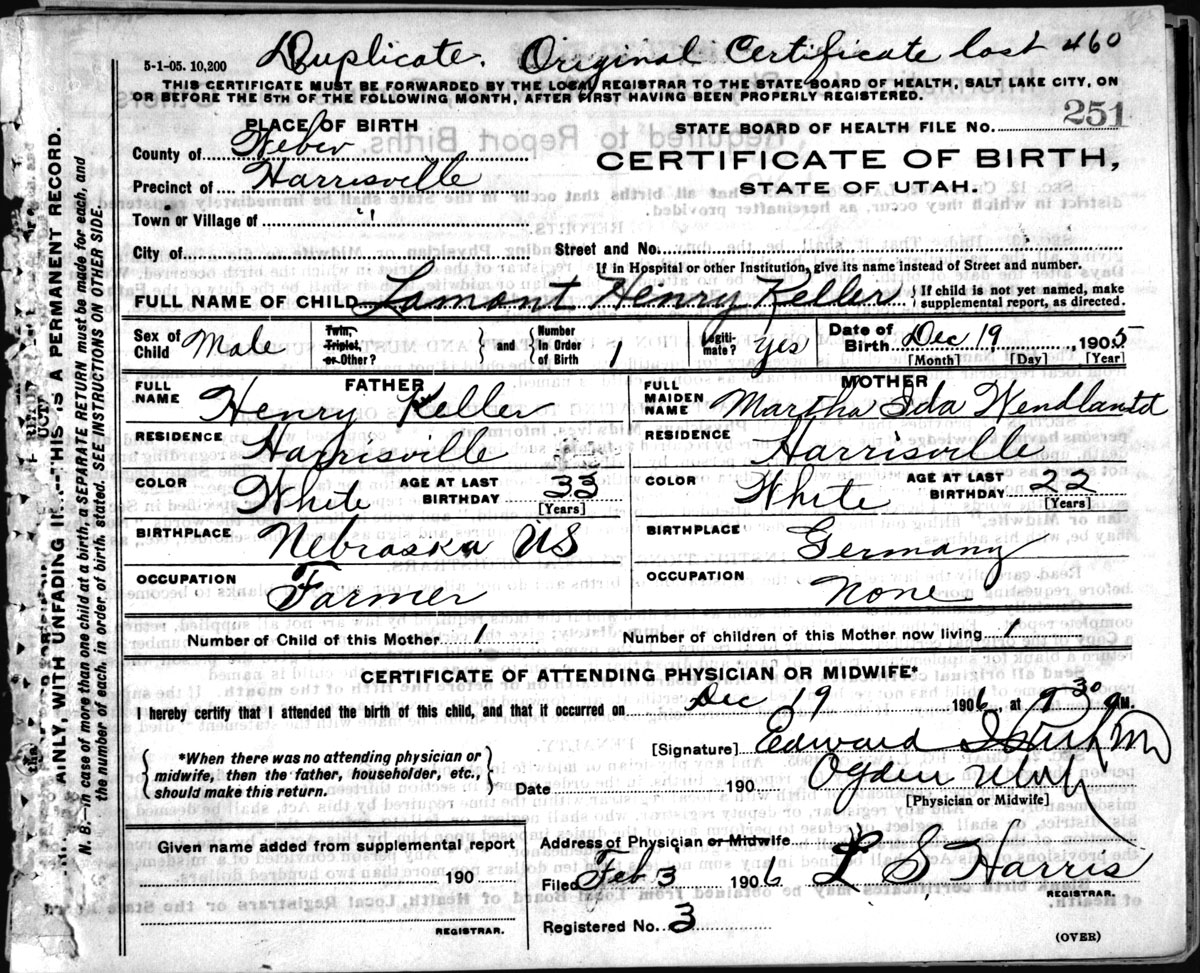 Duplicate. Original Certificate lost 460
5-1-05. 10,200
THIS CERTIFICATE MUST BE FORWARDED BY THE LOCAL REGISTRAR TO THE STATE BOARD OF HEALTH, SALT LAKE CITY, ON
OR BEFORE THE 5TH OF THE FOLLOWING MONTH, AFTER FIRST HAVING BEEN PROPERLY REGISTERED.
251
PLACE OF BIRTH
STATE BOARD OF HEALTH FILE NO.
County of Weber
CERTIFICATE OF BIRTH,
Precinct of Harrisville
STATE OF UTAH.
Town or Village of "
City of Street and No.
If in Hospital or other Institution, give its name instead of Street and number.
FULL NAME OF CHILD Lamont Henry Keller { If child is not yet named, make
supplemental report, as directed.
Sex of Child Male Twin, Triplet, or Other? } and { Number in Order of Birth 1 Legiti-mate? yes Date of Birth Dec 19, 1905
[Month] [Day] [Year]
FATHER MOTHER
FULL NAME Henry Keller FULL MAIDEN NAME Martha Ida Wendlandt
RESIDENCE Harrisville RESIDENCE Harrisville
COLOR White AGE AT LAST BIRTHDAY 33 [Years] COLOR White AGE AT LAST BIRTHDAY 22 [Years]
BIRTHPLACE Nebraska US BIRTHPLACE Germany
OCCUPATION Farmer OCCUPATION None
Number of Child of this Mother 1 Number of children of this Mother now living 1
CERTIFICATE OF ATTENDING PHYSICIAN OR MIDWIFE*
I hereby certify that I attended the birth of this child, and that it occurred on Dec 19 1906, at 9 30 a M.
[Signature] Edward I
*When there was no attending physician or
midwife, then the father, householder, etc.,
should make this return.
Date 190 Ogden Utah
[Physician or Midwife]
Given name added from supplemental report
190
REGISTRAR.
Address of Physician or Midwife
Filed Feb 3 1906 L S Harris
REGISTRAR.
Registered No. 3
(OVER)
AINLY, WITH UNFADING IN --THIS IS A PERMANENT RECORD.
N. B.—In case of more than one child at a birth, a SEPARATE RETURN must be made for each, and
the number of each, in order of birth, stated. SEE INSTRUCTIONS ON OTHER SIDE.